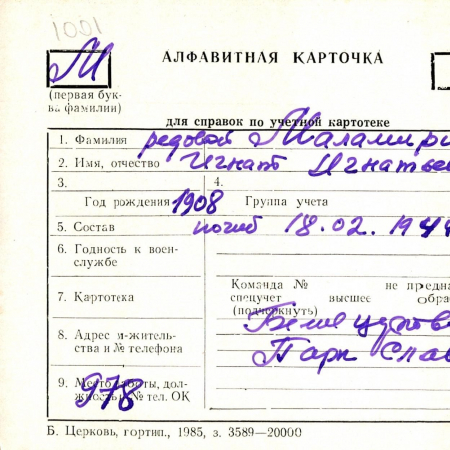 1001
М
АЛФАВИТНАЯ КАРТОЧКА
(первая бук-
ва фамилии)
для справок по учетной картотеке
1. Фамилия рядовой
2. Имя, отчество Игнат Игнатье
3. 4.
Год рождения 1908 Группа учета
5. Состав погиб 18.02.1944
6. Годность к воен-
службе
Команда № не предна
7. Картотека спецучет высшее обра
(подчеркнуть)
8. Адрес м-житель-
ства и № телефона
Парк Слав
9. Место работы, дол-
жность и № тел. ОК
978
Б. Церковь, гортип., 1985, з. 3589—20000